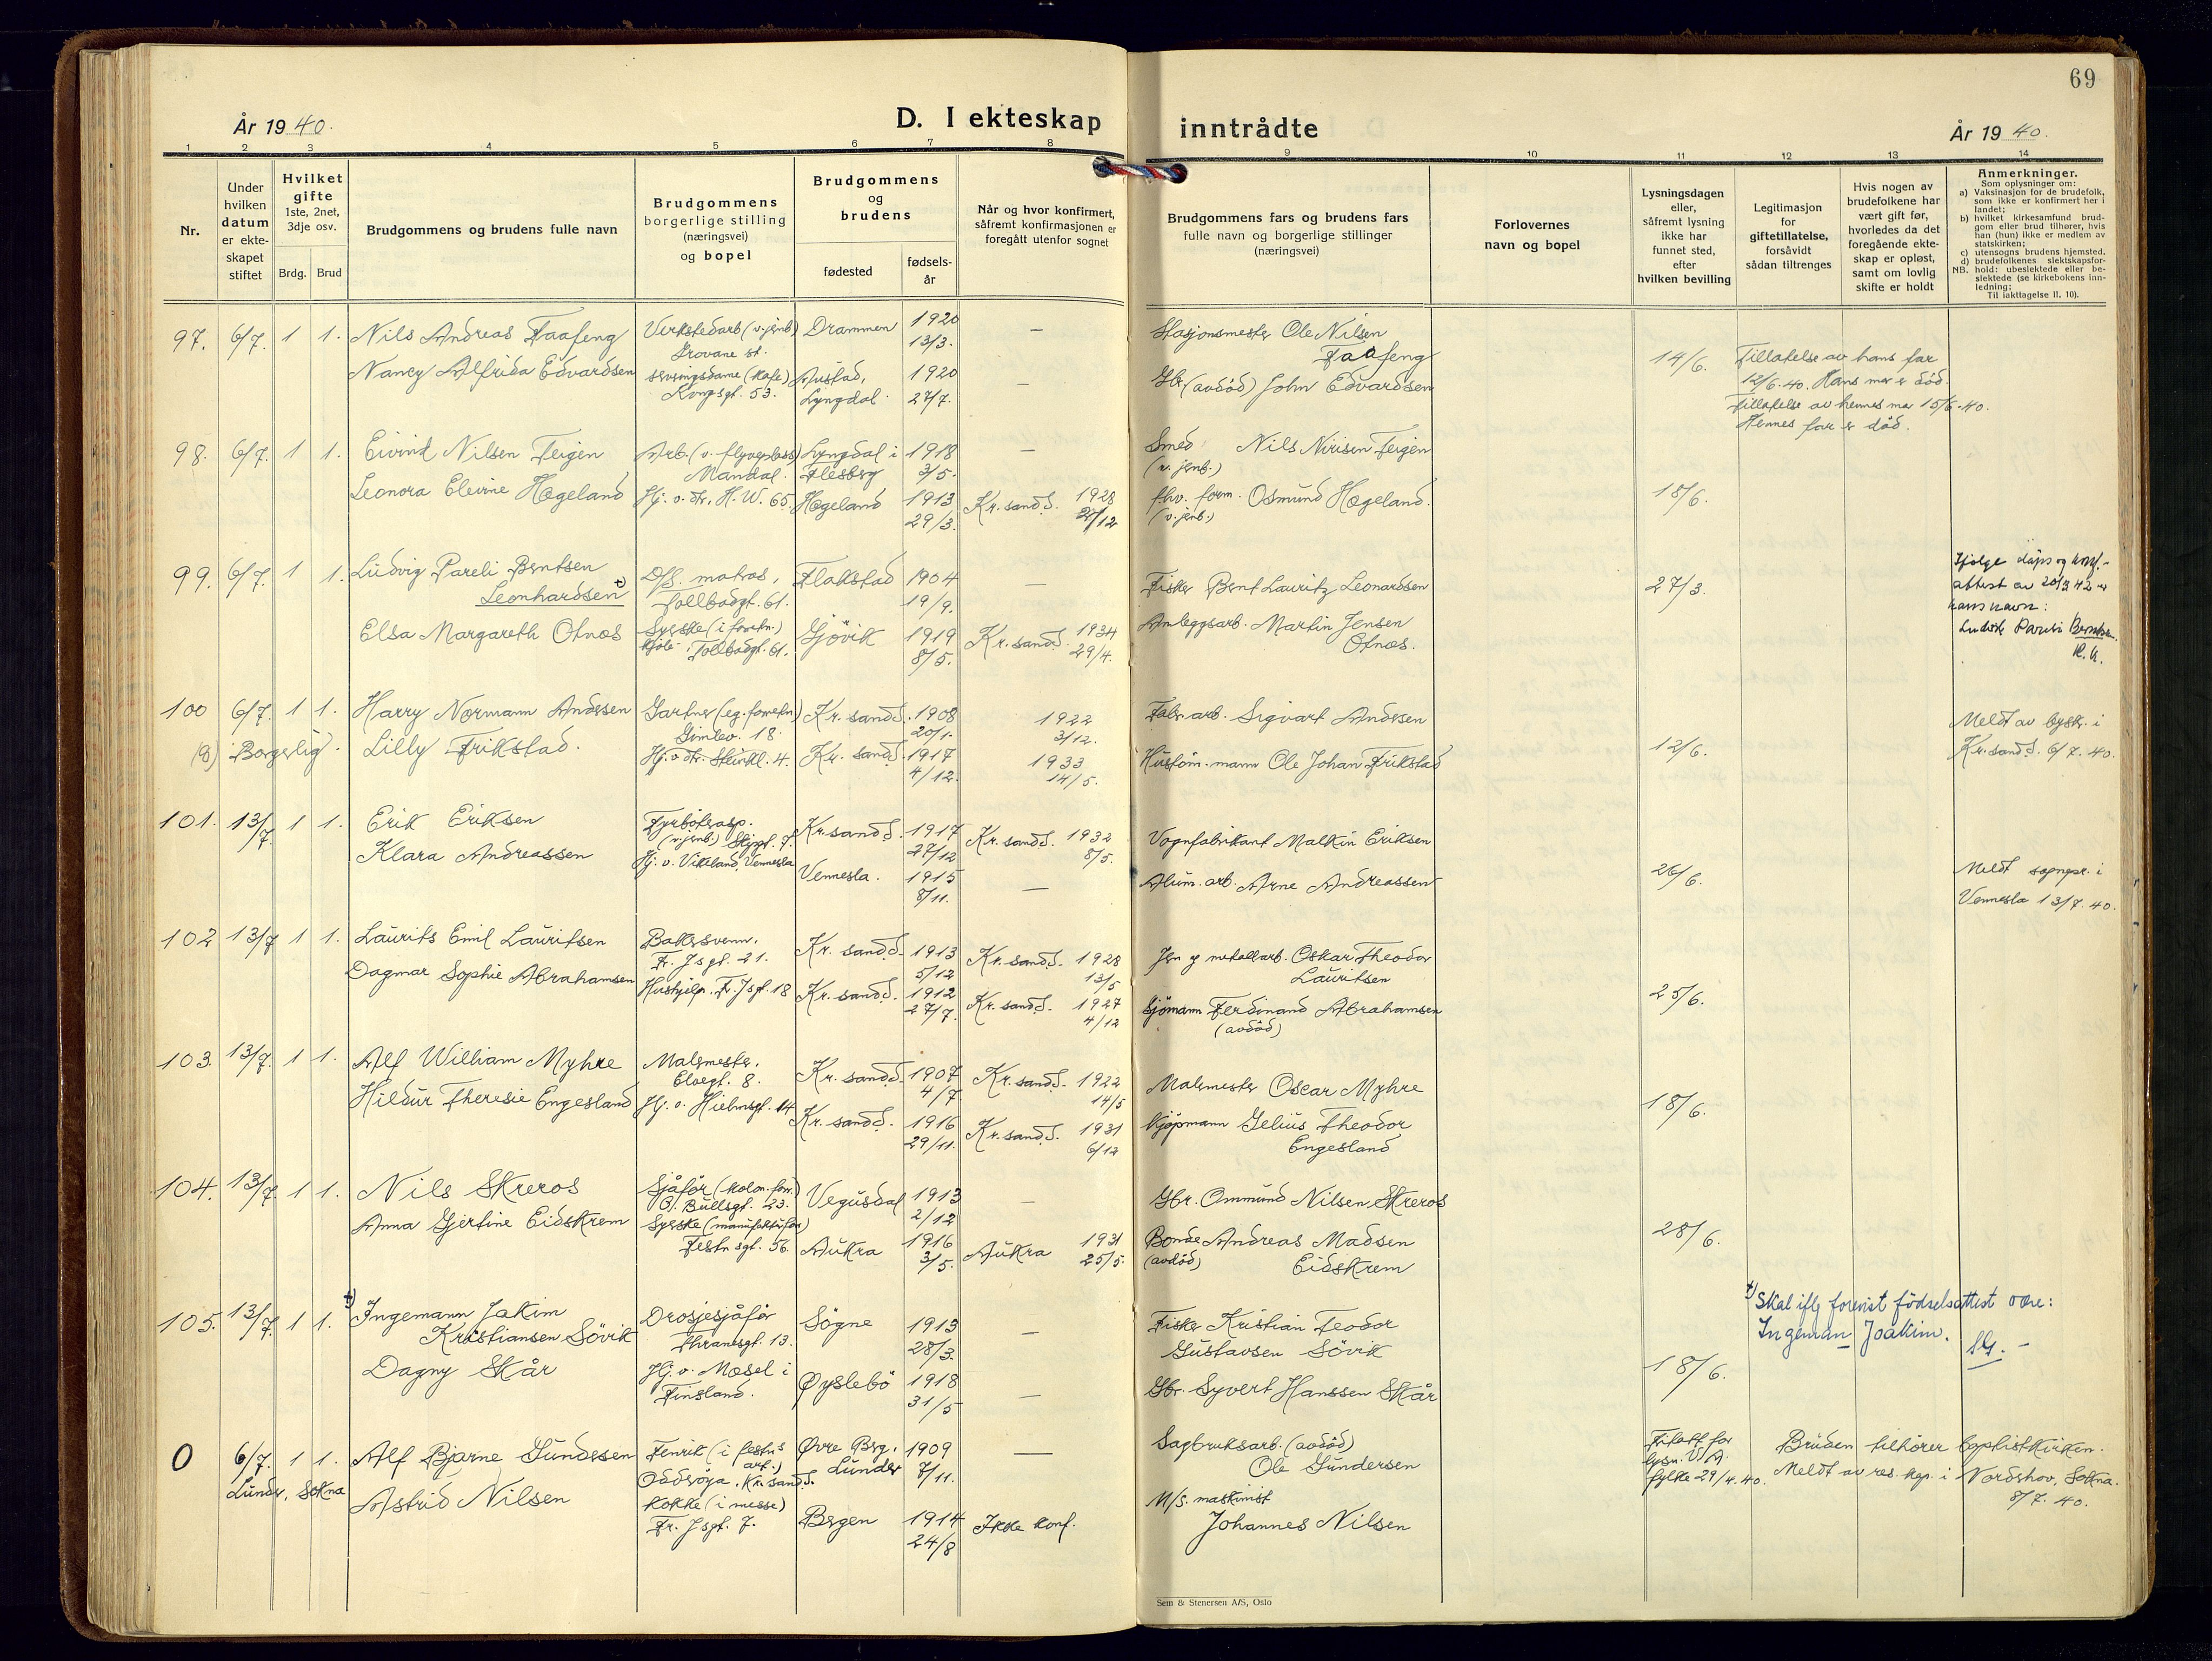 69
År 1940.
D. I ekteskap
inntrådte
År 1940.
1 2 3 4 5 6 7 8 9 10 11 12 13 14
Nr.
Under
hvilken
datum
er ekte-
skapet
stiftet
Hvilket
gifte
1ste, 2net,
3dje osv.
Brdg. Brud
Brudgommens og brudens fulle navn
Brudgommens
borgerlige stilling
(næringsvei)
og bopel
Brudgommens
og
brudens
fødested
fødsels-
år
Når og hvor konfirmert,
såfremt konfirmasjonen er
foregått utenfor sognet
Brudgommens fars og brudens fars
fulle navn og borgerlige stillinger
(næringsvei)
Forlovernes
navn og bopel
Lysningsdagen
eller,
såfremt lysning
ikke har
funnet sted,
efter
hvilken bevilling
Legitimasjon
for
giftetillatelse,
forsåvidt
sådan tiltrenges
Hvis nogen av
brudefolkene har
vært gift før,
hvorledes da det
foregående ekte-
skap er opløst,
samt om lovlig
skifte er holdt
Anmerkninger.
Som oplysninger om:
a) Vaksinasjon for de brudefolk,
som ikke er konfirmert her i
landet;
b) hvilket kirkesamfund brud-
gom eller brud tilhører, hvis
han (hun) ikke er medlem av
statskirken;
c) utensogns brudens hjemsted.
d) brudefolkenes slektskapsfor-
NB. hold: ubeslektede eller be-
slektede (se kirkebokens inn-
ledning;
Til iakttagelse II. 10).
97. 6/7. 1 1. Nils Andreas Faafeng
Verkstedarb (v. jernb)
Grovane st.
Drammen 1920
13/3. —
Stasjonsmester Ole Nilsen
Faafeng
Nancy Alfrida Edvardsen
serveringsdame (Kafe)
Kongsgt. 53.
Austad,
Lyngdal. 1920
27/7. —
Gbr. (avdöd) John Edvardsen
14/6.
Tillatelse av hans far
12/6-40. Hans mor er död.
Tillatelse av hennes mor 15/6-40.
Hennes far er död.
98. 6/7. 1 1. Eivind Nilsen Teigen
Arb. (v. flyveplass)
Mandal.
Lyngdal i
Flesberg 1918
3/5. —
Smed Nils Nirisen Teigen
(v. jernb.)
Leonora Elevine Hægeland
Hj. v. Fr. H. W. 65.
Hægeland 1913
29/3.
Kr.sand S. 1928
fhv. form. Osmund Hægeland.
(v. jernb.)
18/6.
99. 6/7. 1 1. Ludvig Pareli Berntsen
Leonhardsen
D/S. matros,
Tollbodgt. 61.
Flakstad 1904
19/9. —
Fisker Bernt Lauritz Leonardsen
Elsa Margareth Otnes
Syerske (i forretn.)
Tollbodgt. 61.
Gjövik 1919
8/5.
Kr.sand S. 1934
29/4.
Anleggsarb. Martin Jensen
Otnes.
27/3.
Ifølge dåps og konf.-
attest av 20/3 42 er
hans navn:
Ludvik Pareli Berntsen.
100 6/7. 1 1. Harry Normann Andersen
Gartner (eg. forretn.)
Gimlev. 18.
Kr. sand S. 1908
20/1.
1922
3/12.
Fabr. arb. Sigvart Andersen
(8) Borgerlig. Lilly Frikstad.
Hj. v. Fr. Steinkl. 4.
Kr. sand S. 1917
4/12.
1933
14/5.
Hustöm. mann Ole Johan Frikstad
12/6.
Meldt av byskr. i
Kr.sand S. 6/7. 40.
101. 13/7. 1 1. Erik Eriksen
Fyrböterasp.
(v. jernb) Skippgt. 7.
Kr.sand S. 1917
27/12
Kr.sand S. 1932
8/5.
Vognfabrikant Malkin Eriksen
Klara Andreassen
Hj. v. Vikeland, Vennesla
Vennesla. 1915
8/11. —
Alum. arb. Arne Andreassen
26/6.
Meldt sognepr. i
Vennesla 13/7. 40.
102 13/7 1 1. Laurits Emil Lauritsen
Bakersvenn.
Fr. Jsgt. 21.
Kr. sand S. 1913
5/12
Kr. sand S. 1928
13/5
Jern og metallarb. Oskar Theodor
Lauritsen
Dagmar Sophie Abrahamsen
Hushjelp. Fr. Jsgt. 18
Kr. sand S. 1912
27/7.
Kr. sand S. 1927
4/12
Sjömann Ferdinand Abrahamsen
(avdöd)
25/6.
103. 13/7. 1 1. Alf William Myhre
Malermester.
Elvegt. 8.
Kr. sand S. 1907
4/7
Kr. sand S. 1922
14/5
Malermester Oscar Myhre
Hildur Theresie Engesland
Hj. v. Hielmsgt. 14
Kr. sand S. 1916
29/11.
Kr. sand S. 1931
6/12
Kjöpmann Gelius Theodor
Engesland
18/6.
104. 13/7 1 1. Nils Skreros
Sjåför (kolon. forr.)
O. Bullsgt. 23.
Vegusdal 1913
2/12 —
Gbr. Ommund Nilsen Skreros
Anna Gjertine Eidskrem
Syerske (manufakturforr)
Festn.sgt. 56.
Aukra 1916
3/5.
Aukra 1931
25/5.
Bonde Andreas Madsen
(avdöd) Eidskrem
28/6.
105. 13/7. 1 1. Ingemann Jakim
Kristiansen Sövik
Drosjesjåför
Thranesgt. 13.
Sögne 1913
28/3. —
Fisker Kristian Teodor
Gustavsen Sövik
Dagny Skår
Hj. v. Mosel i
Finsland.
Øyslebö 1918
31/5 —
Gbr. Syvert Hanssen Skår
18/6.
Skal iflg forevist födselsattest være:
Ingeman Joakim.
0 6/7. 1 1. Alf Bjarne Gundersen
Fenrik (i festn.s
art.)
Odderöya. Kr. sand S.
Øvre Berg.
Lunder 1909
7/11. —
Sagbruksarb. (avdöd)
Ole Gundersen
Lunder, Sokna Astrid Nilsen
Kokke (i messe)
Fr. Jsgt. 7.
Bergen 1914
24/8
Ikke konf.
M/S. maskinist
Johannes Nilsen
fylke 29/4. 40.
Bruden tilhører baptistkirken.
Meldt av res. kap. i Nordehov, Sokna.
8/7. 40.
Sem & Stenersen A/S, Oslo